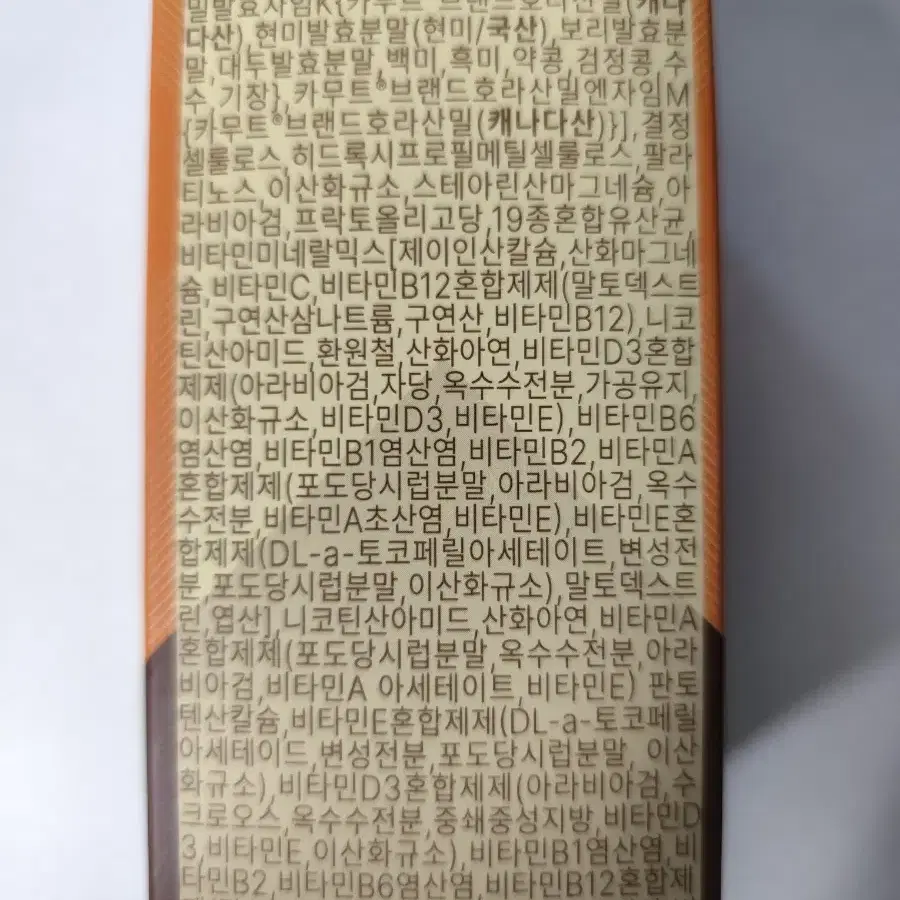 밀발효자임K{카무트®브랜드호라산밀(캐나
다산),현미발효분말(현미/국산),보리발효분
말,대두발효분말,백미,흑미,약콩,검정콩,수
수,기장},카무트®브랜드호라산밀엔자임M
{카무트®브랜드호라산밀(캐나다산)}],결정
셀룰로스,히드록시프로필메틸셀룰로스,팔라
티노스,이산화규소,스테아린산마그네슘,아
라비아검,프락토올리고당,19종혼합유산균,
비타민미네랄믹스[제이인산칼슘,산화마그네
슘,비타민C,비타민B12혼합제제(말토덱스트
린,구연산삼나트륨,구연산,비타민B12),니코
틴산아미드,환원철,산화아연,비타민D3혼합
제제(아라비아검,자당,옥수수전분,가공유지,
이산화규소,비타민D3,비타민E),비타민B6
염산염,비타민B1염산염,비타민B2,비타민A
혼합제제(포도당시럽분말,아라비아검,옥수
수전분,비타민A초산염,비타민E),비타민E혼
합제제(DL-a-토코페릴아세테이트,변성전
분,포도당시럽분말,이산화규소),말토덱스트
린,엽산],니코틴산아미드,산화아연,비타민A
혼합제제(포도당시럽분말,옥수수전분,아라
비아검,비타민A 아세테이트,비타민E) 판토
텐산칼슘,비타민E혼합제제(DL-a-토코페릴
아세테이드,변성전분,포도당시럽분말, 이산
화규소),비타민D3혼합제제(아라비아검,수
크로오스,옥수수전분,중쇄중성지방,비타민D
3,비타민E,이산화규소),비타민B1염산염,비
타민B2,비타민B6염산염,비타민B12혼합제